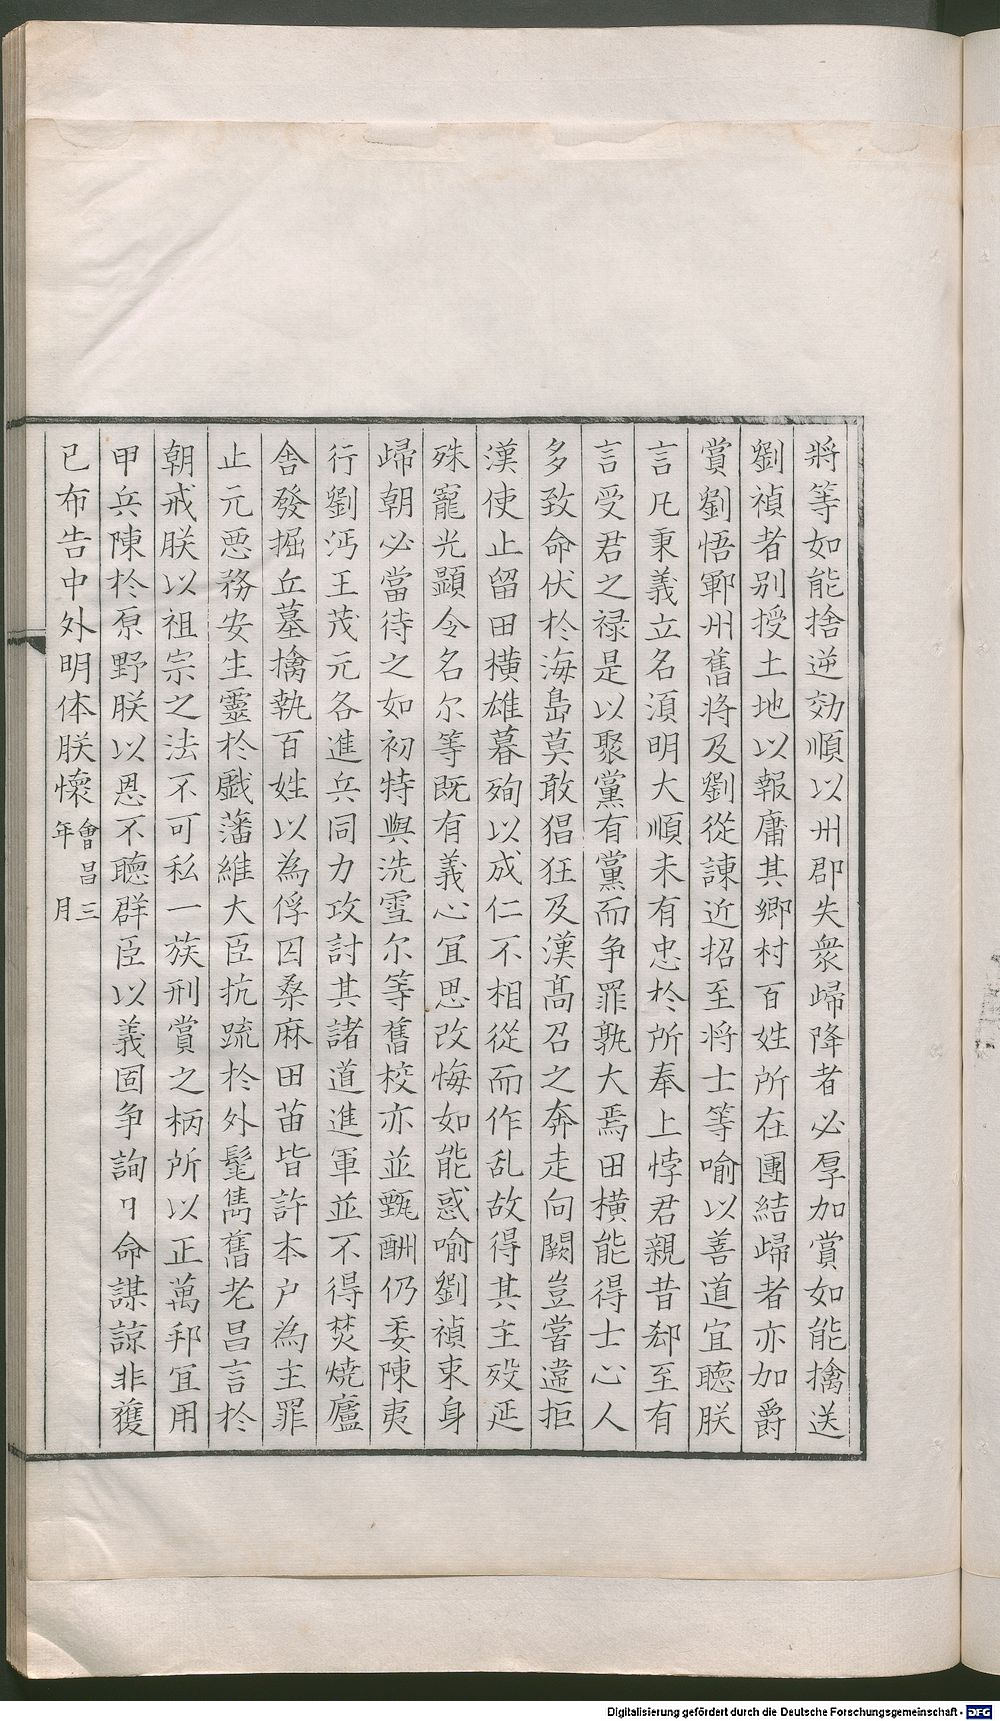 將等如能捨逆効順以州郡失衆歸降者必厚加賞如能擒送
劉禎者别授土地以報庸其鄉村百姓所在團結歸者亦加爵
賞劉悟鄆州舊將及劉從諫近招至将士等喻以善道宜聽朕
言凡秉義立名須明大順未有忠扵所奉上悖君親昔郄至有
言受君之禄是以聚黨有黨而争罪孰大焉田橫能得士心人
多致命伏扵海島莫敢猖狂及漢髙召之奔走向闕豈嘗違拒
漢使止留田横雄暮殉以成仁不相從而作乱故得其主殁延
殊寵光顕令名尔等既有義心冝思改悔如能惑喻劉禎束身
歸朝必當待之如初特與洗雪尔等舊校亦並甄酬仍委陳夷
行劉沔王茂元各進兵同力攻討其諸道進軍並不得焚燒廬
舎發掘丘墓擒執百姓以為俘囚桑麻田苗皆許本户為主罪
止元悪務安生靈扵戯藩維大臣抗疏扵外髦雋舊老昌言扵
朝戒朕以祖宗之法不可私一族刑賞之柄所以正萬邦冝用
甲兵陳扵原野朕以恩不聽群臣以義固争詢曰命謀諒非獲
已布告中外明体朕懷會昌三年月
Digitalisierung gefördert durch die Deutsche Forschungsgemeinschaft - DFG